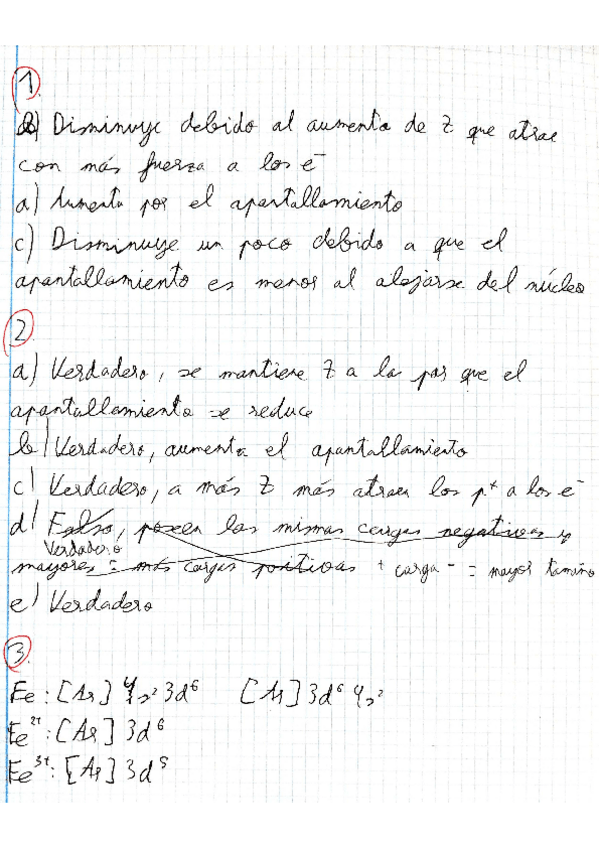 1.
b) Disminuye debido al aumento de Z que atrae
con más fuerza a los e⁻
a) Aumenta por el apantallamiento
c) Disminuye un poco debido a que el
apantallamiento es menor al alejarse del núcleo
2
a) Verdadero, se mantiene Z a la par que el
apantallamiento se reduce
b) Verdadero, aumenta el apantallamiento
c) Verdadero, a más Z más atraen los p⁺ a los e⁻
d) Falso, poseen las mismas cargas negativas y
Verdadero
mayores = más cargas positivas + carga - = mayor tamaño
e) Verdadero
3.
Fe: [Ar] 4s² 3d⁶ [Ar] 3d⁶ 4s²
Fe²⁺: [Ar] 3d⁶
Fe³⁺: [Ar] 3d⁵